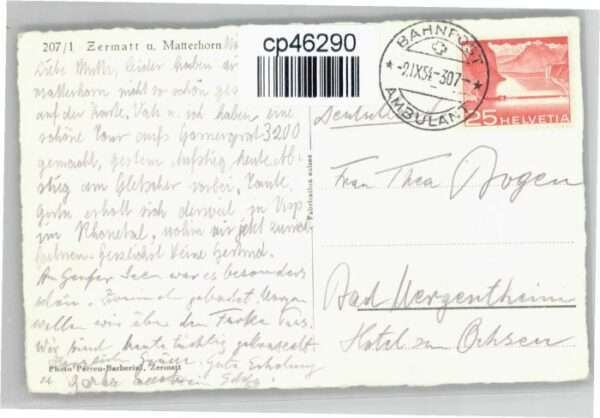 207/1 Zermatt u. Matterhorn
cp46290
Liebe Mutti, leider haben wir
Matterhorn nicht so schön
auf der Karte. Vati u. ich haben eine
schöne Tour aufs Gornergrat 3200
gemacht, gestern Aufstieg heute Ab-
stieg am Gletscher vorbei. Tante
erholt sich derweil in Visp
im Rhonetal, wohin wir jetzt zurück-
fahren. Herzlichst Deine
Am Genfer See war es besonders
schön. gebadet. Morgen
wollen wir über den Furka Pass.
Wir sind heute tüchtig gewandert.
Herzliche Grüße. Gute Erholung
Photo Perren-Barberini, Zermatt
Fabrication suisse
BAHNPOST
-9.IX.54-307-
AMBULANT
25 HELVETIA
Frau Thea Bogen
Bad Mergentheim
Hotel zum Ochsen